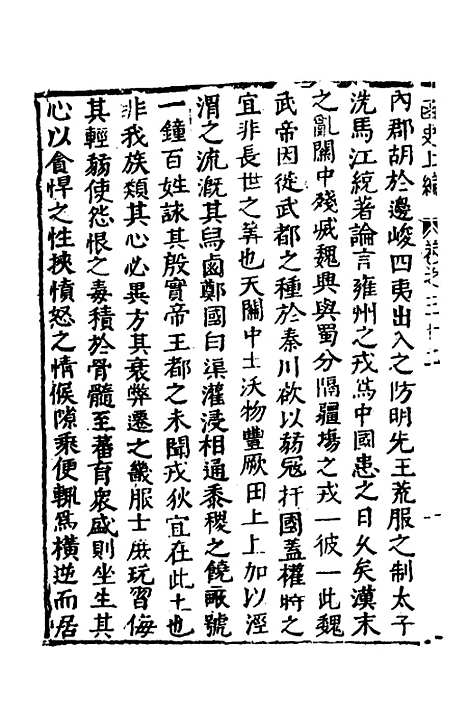 函史上編 卷之三十二
內郡胡於邊峻四夷出入之防明先王荒服之制太子
洗馬江統著論言雍州之戎爲中國患之日久矣漢末
之亂關中殘滅魏興與蜀分隔疆場之戎一彼一此魏
武帝因徙武都之種於秦川欲以弱寇扞國蓋權時之
宜非長世之筭也夫關中土沃物豐厥田上上加以涇
渭之流漑其舄鹵鄭國白渠灌浸相通黍稷之饒畝號
一鐘百姓詠其殷實帝王都之未聞戎狄宜在此土也
非我族類其心必異方其衰弊遷之畿服士庶玩習侮
其輕弱使怨恨之毒積於骨髓至蕃育衆盛則坐生其
心以貪悍之性挾憤怒之情候隙乘便輒爲橫逆而居